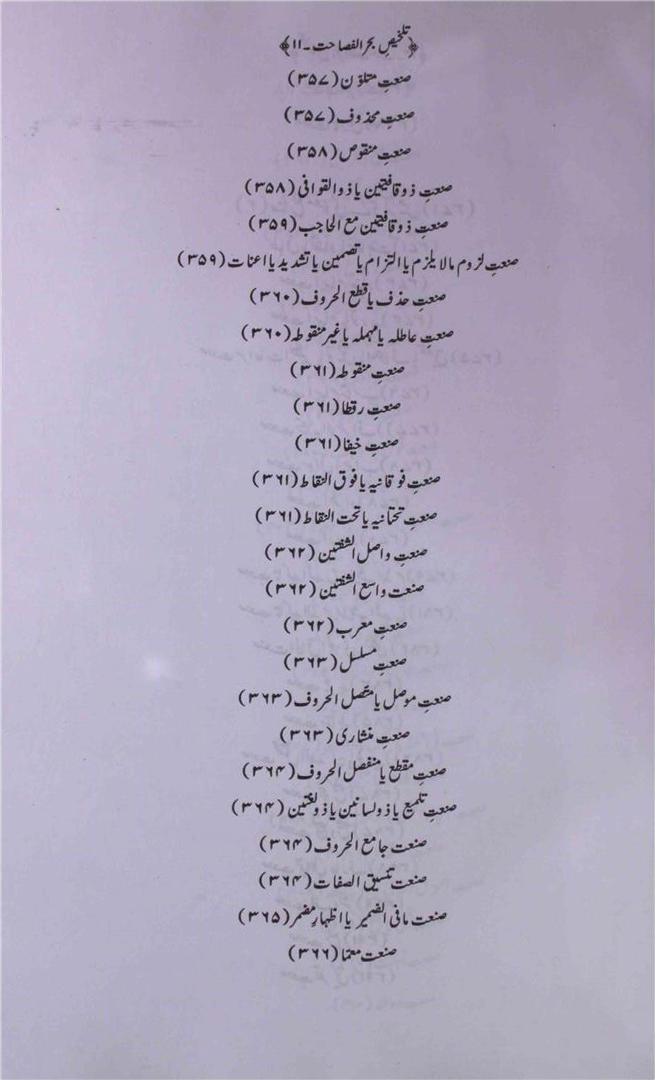 ﴿تلخیصِ بحر الفصاحت۔۱۱﴾
صنعتِ متلوّن (۳۵۷)
صنعتِ محذوف (۳۵۷)
صنعتِ منقوص (۳۵۸)
صنعتِ ذوقافیتین یا ذوالقوافی (۳۵۸)
صنعتِ ذوقافیتین مع الحاجب (۳۵۹)
صنعتِ لزوم مالا یلزم یا التزام یا تضمین یا تشدید یا اعنات (۳۵۹)
صنعتِ حذف یا قطع الحروف (۳۶۰)
صنعتِ عاطلہ یا مہملہ یا غیر منقوطہ (۳۶۰)
صنعتِ منقوطہ (۳۶۱)
صنعتِ رقطا (۳۶۱)
صنعتِ خیفا (۳۶۱)
صنعتِ فوقانیہ یا فوق النقاط (۳۶۱)
صنعتِ تحتانیہ یا تحت النقاط (۳۶۱)
صنعتِ واصل الشفتین (۳۶۲)
صنعت واسع الشفتین (۳۶۲)
صنعتِ معرب (۳۶۲)
صنعتِ مسلسل (۳۶۳)
صنعتِ موصل یا متّصل الحروف (۳۶۳)
صنعتِ منشاری (۳۶۳)
صنعتِ مقطع یا منفصل الحروف (۳۶۴)
صنعتِ تلمیع یا ذولسانین یا ذولغتین (۳۶۴)
صنعت جامع الحروف (۳۶۴)
صنعت تنسیق الصفات (۳۶۴)
صنعت مافی الضمیر یا اظہارِ مضمر (۳۶۵)
صنعت معمّا (۳۶۶)